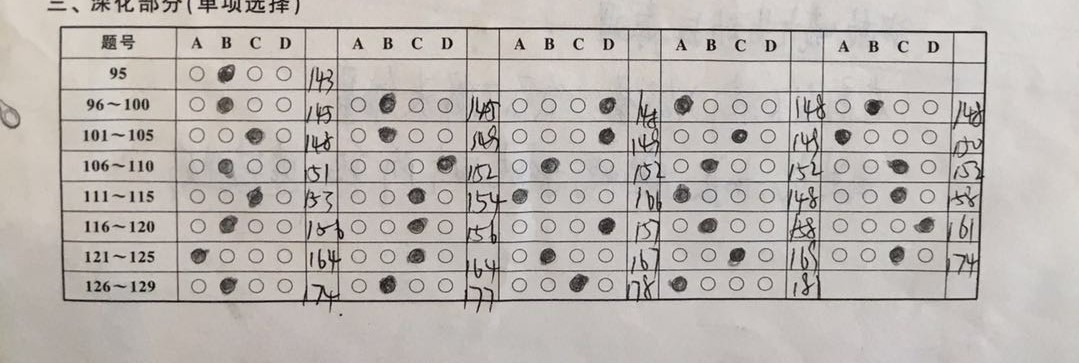 三、深化部分(单项选择)
题号 A B C D A B C D A B C D A B C D A B C D
95 143
96～100 145 145 148 148 148
101～105 148 149 149 149 150
106～110 151 152 152 152 153
111～115 153 154 166 148 158
116～120 156 156 157 158 161
121～125 164 164 167 169 174
126～129 174 177 178 181